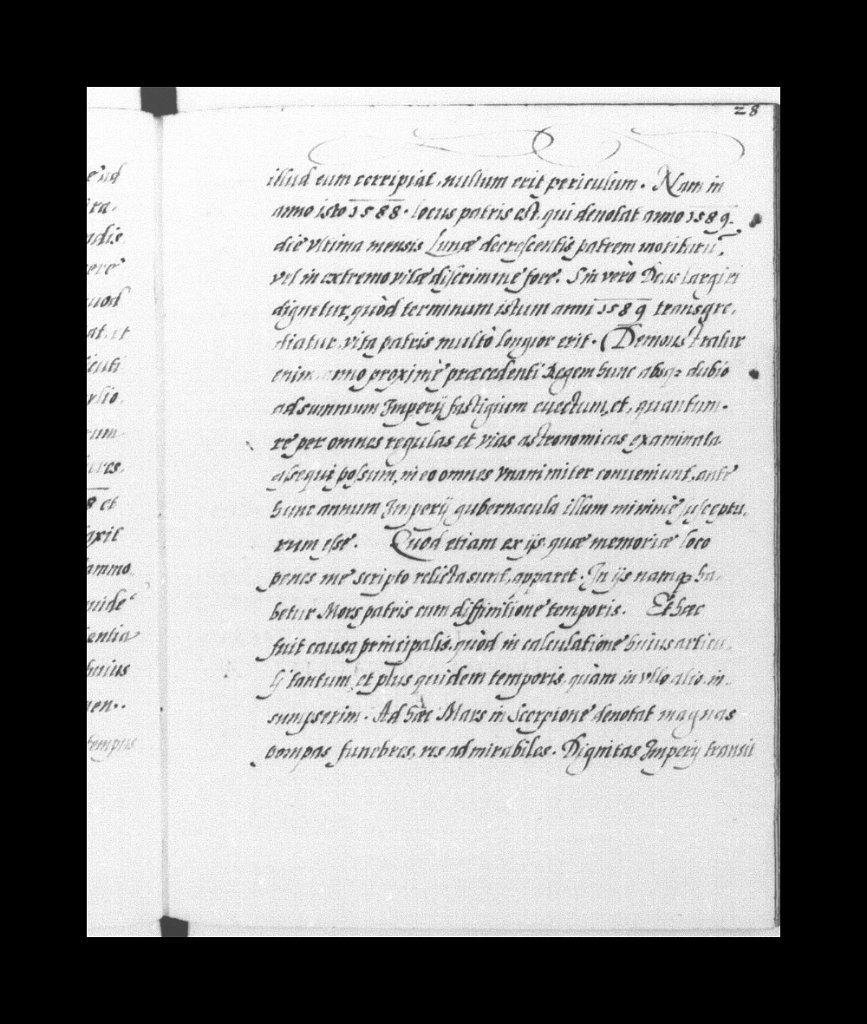 28
e ad
ira.
adis.
ere
uod
at. et
ylio.
rum
ures.
8 et
axit
ammo.
uide
entia
huius
nen..
tempus
illud eum corripiat, nullum erit periculum. Nam in
anno isto 1588. locus patris est, qui denotat anno 1589.
die vltima mensis Lunæ decrescentis patrem moriturũ,
vel in extremo vitæ discrimine fore. Sin verò Deus largiri
dignetur, quòd terminum istum anni 1589 transgre,
diatur, vita patris multò longior erit. (Demonstratur
enim anno proximè præcedenti Regem hunc absq3 dubio
ad summum Imperij fastigium euectum, et, quantum.
re per omnes regulas et vias astronomicas examinata
assequi possum, in eo omnes vnanimiter conueniunt, ante
hunc annum Imperij gubernacula illum minimè susceptu,
rum esse. Quod etiam ex ijs quæ memoriæ loco
penes me scripto relicta sunt, apparet. In ijs namq3 ha,
betur Mors patris cum diffinitione temporis. Et hæc
fuit causa principalis, quòd in calculatione huius articu,
lj tantum, et plus quidem temporis, quàm in vllo alio, in,
sumpserim. Ad hæc Mars in Scorpione denotat magnas
pompas funebres, res admirabiles. Dignitas Imperij transit